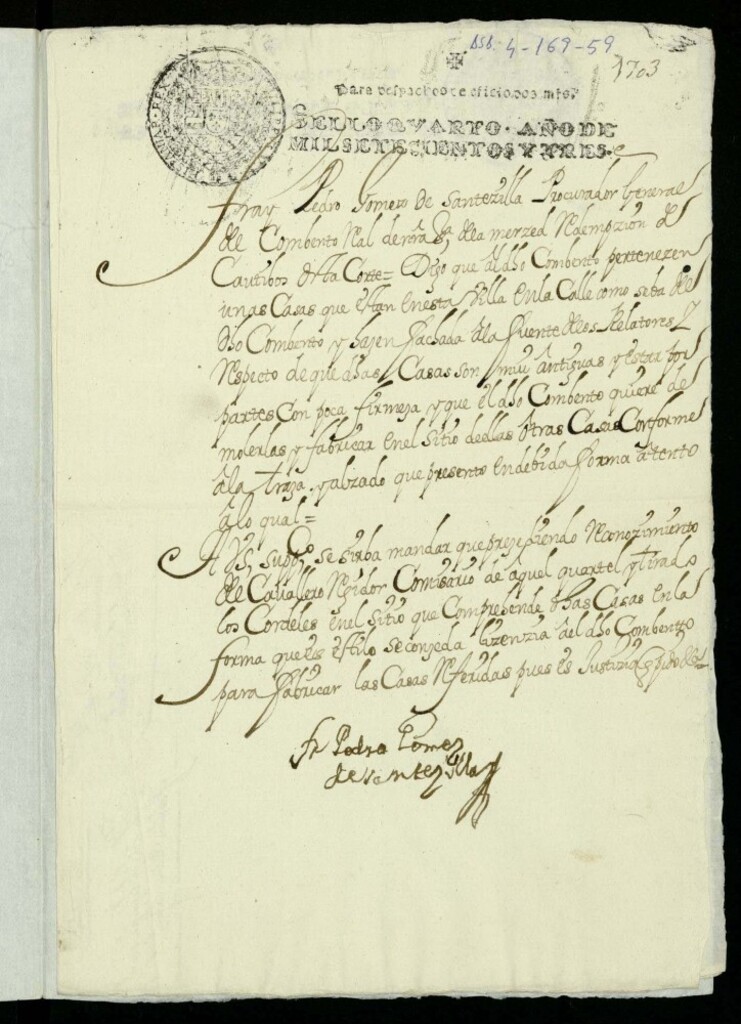 ASA. 4-169-59
1703
Para despachos de oficio, dos mrs.
SELLO QVARTO. AÑO DE
MIL SETECIENTOS Y TRES.
fray Pedro Gomez de Santezilla Procurador General
del Combento Real de nra sa de la merzed Redempzion de
Cautibos desta Corte= Digo que al dho Combento pertenezen
unas Casas que estan en esta Villa en la Calle como se ba del
dho Combento y hazen fachada a la fuente de los Relatores Y
Respecto de que dhas Casas son mui antiguas y estar por
partes Con poca firmeza y que el dho Combento quiere de
molerlas y fabricar en el sitio dellas otras Casas Conforme
a la traza, y alzado que presento en debida forma atento
a lo qual=
A VS, suppco se sirba mandar que prezediendo Reconozimiento
del Cavallero Rejidor Comisario de aquel quartel y tirado
los Cordeles en el sitio que Comprehende dhas Casas en la
forma que es estilo se conzeda lizenzia al dho Combento
para fabricar las Casas Referidas pues es Justizia que pido &
fr Pedro Gomez
de Santezilla